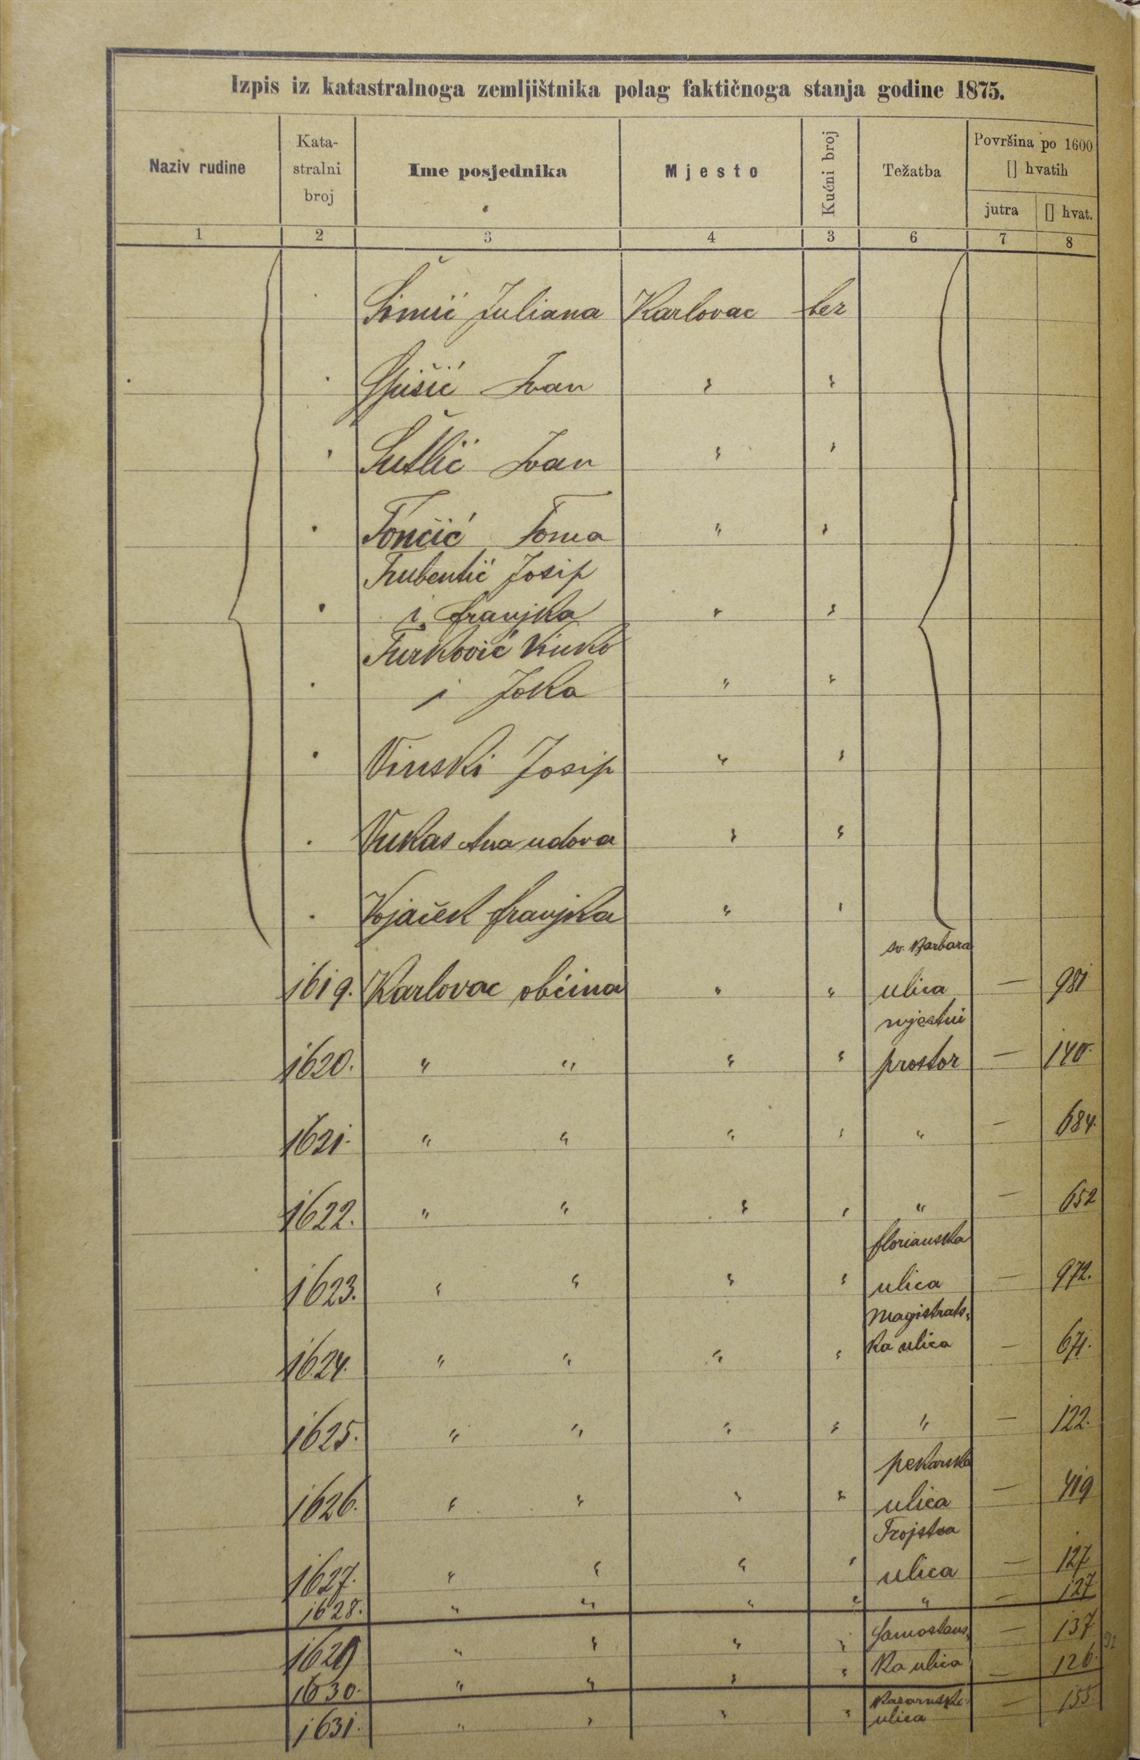 Izpis iz katastralnoga zemljištnika polag faktičnoga stanja godine 1875.
Naziv rudine
Kata-
stralni
broj
Ime posjednika
Mjesto
Kućni broj
Težatba
Površina po 1600
[] hvatih
jutra
[] hvat.
1 2 3 4 3 6 7 8
Šimić Juliana Karlovac bez
Ivan " "
Šutlić Ivan " "
Tončić Toma " "
Trubentić Josip
i Franjka " "
Turković Vinko
i Joka " "
Vinski Josip " "
Vukas Ana udova " "
Vojaček Franjka " "
sv. Barbara
1619. Karlovac občina " " ulica — 981
mjestni
1620. " " " " prostor — 140.
1621. " " " " " — 684.
1622. " " " " " — 652
florianska
1623. " " " " ulica — 972.
Magistrats-
1624. " " " " ka ulica — 671.
1625. " " " " " — 122.
pekarska
1626. " " " " ulica — 419
Trojstva
1627. " " " " ulica — 127
1628. " " " " " — 127
1629 " " " " Samostans- — 137
1630. " " " " ka ulica — 126.
1631. " " " " — 155
ulica